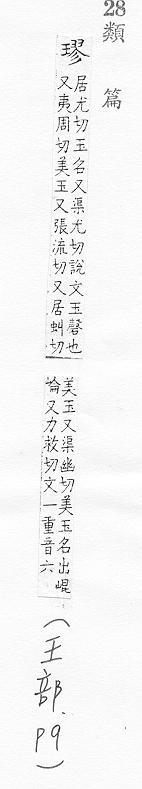 28
類篇
璆
居尤切玉名又渠尤切說文玉磬也
又夷周切美玉又張流切又居虯切
美玉又渠幽切美玉名出崐
崘又力救切文一重音六
(玉部.P9)